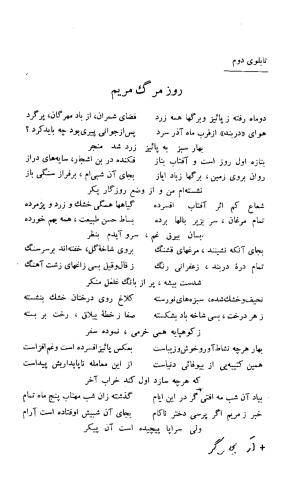 تابلوی دوم
روز مرگ مریم
دوماه رفته ز پائیز و برگها همه زرد فضای شمران، از باد مهرگان، پرگرد
هوای «دربند» ازقرب ماه آذر سرد پس ازجوانی پیری بود چه بایدکرد؟
بهار سبز به پائیز زرد شد منجر
بتازه اول روز است و آفتاب بناز فکنده در بن اشجار، سایه‌های دراز
روان بروی زمین، برگها زباد ایاز بجای آن شبی‌ام، برفراز سنگی باز
نشسته‌ام من و از وضع روزگار پکر
شعاع کم اثر آفتاب افسرده گیاهها همگی خشک و زرد و پژمرده
تمام مرغان، سر بزیر بالها برده بساط حسن طبیعت، همه بهم خورده
بسان بیرق غم، سرو آیدم بنظر
بجای آنکه نشینند، مرغهای قشنگ بروی شاخهٔ گل، خفته‌اند برسرسنگ
تمام درهٔ دربند، زعفرانی رنگ ز قال وقیل بسی زاغهای زشت آهنگ
شدست بیشه، پر از بانگ غلغل منکر
نحیف وخشک‌شده، سبزه‌های نورسته کلاغ روی درختان خشک بنشسته
ز هر درخت، بسی شاخه باد بشکسته صفا زخطهٔ ییلاق، رخت بر بسته
ز کوهپایه همی خرمی، نموده سفر
بهار هرچه نشاط‌آور وخوش وزیباست بعکس پائیز افسرده است وغم‌افزاست
همین کتیبه‌یی از بیوفائی دنیاست از این معامله ناپایداریش پیداست
که هرچه سازد اول کند خراب آخر
بیاد آن شب مه افتی گر در این ایام گذشته زان شب مهتاب پنج ماه تمام
خبر ز مریم اگر پرسی دختر ناکام بجای آن شبیش اوفتاده است آرام
ولی سراپا پیچیده است آن پیکر